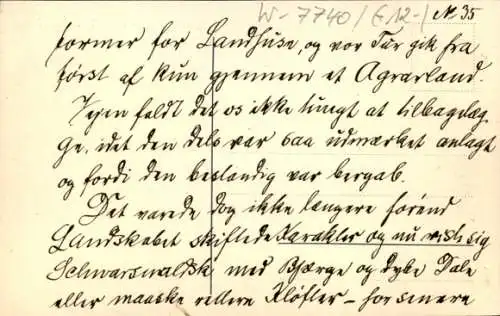 W-7740/E12-/ № 35
former for Landhuse, og vor Tur gik fra
først af kun gjennem et Agrarland.
Vejen faldt det os ikke tungt at tilbagelæg-
ge, idet den dels var saa udmærket anlagt
og fordi den bestandig var bergab.
Det varede dog ikke længere førend
Landskabet skiftede Karakter og nu viste sig
Schwarzwaldsk med Bjærge og dybe Dale
eller maaske rettere Kløfter – for smere